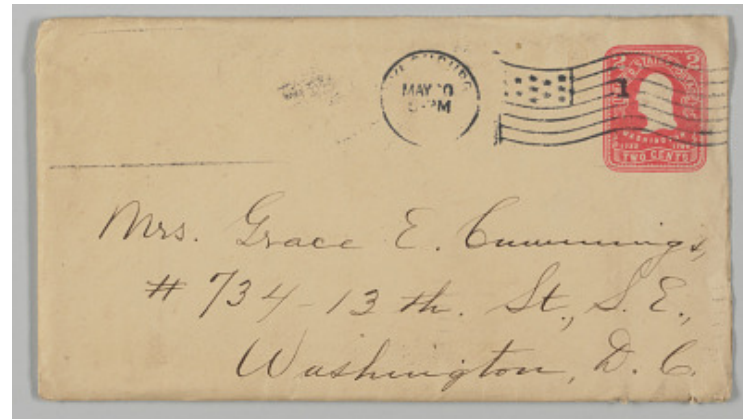 MAY
PM
2 2
1
WASHINGTON
TWO CENTS
Mrs. Grace E. Cummings,
# 734-13th. St., S. E.,
Washington, D. C.